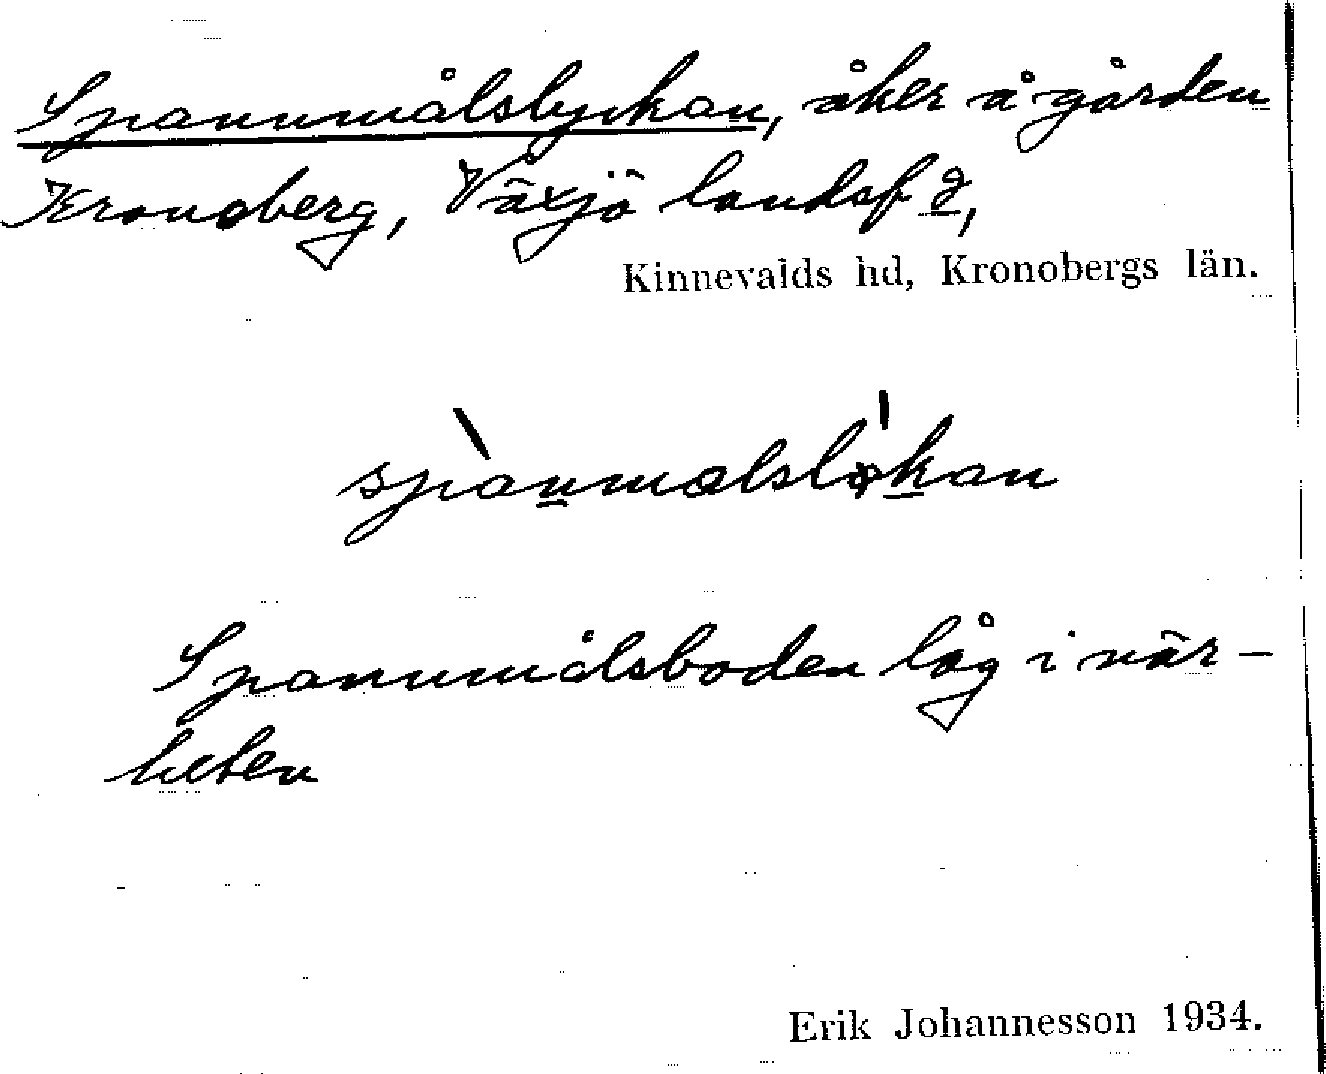 Spannmålslyckan, åker å gården
Kronoberg, Växjö landsf d,
Kinnevalds hd, Kronobergs län.
spanmalslökan
Spannmålsboden låg i när-
heten
Erik Johannesson 1934.